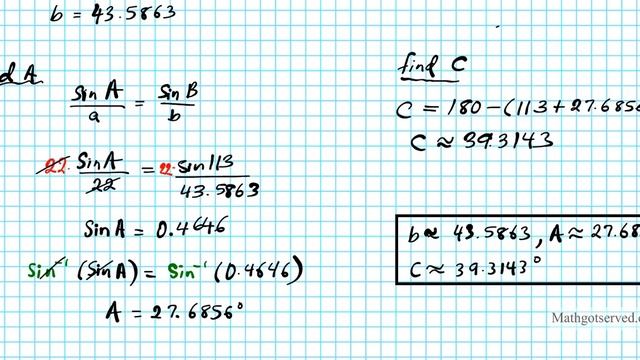 b = 43.5863
d A
sin A / a = sin B / b
22. Sin A / 22 = 22. sin 113 / 43.5863
Sin A = 0.4646
Sin⁻¹ (Sin A) = Sin⁻¹ (0.4646)
A = 27.6856°
find C
C = 180 - (113 + 27.6856
C ≈ 39.3143
b ≈ 43.5863, A ≈ 27.68
C ≈ 39.3143°
Mathgotserved.c